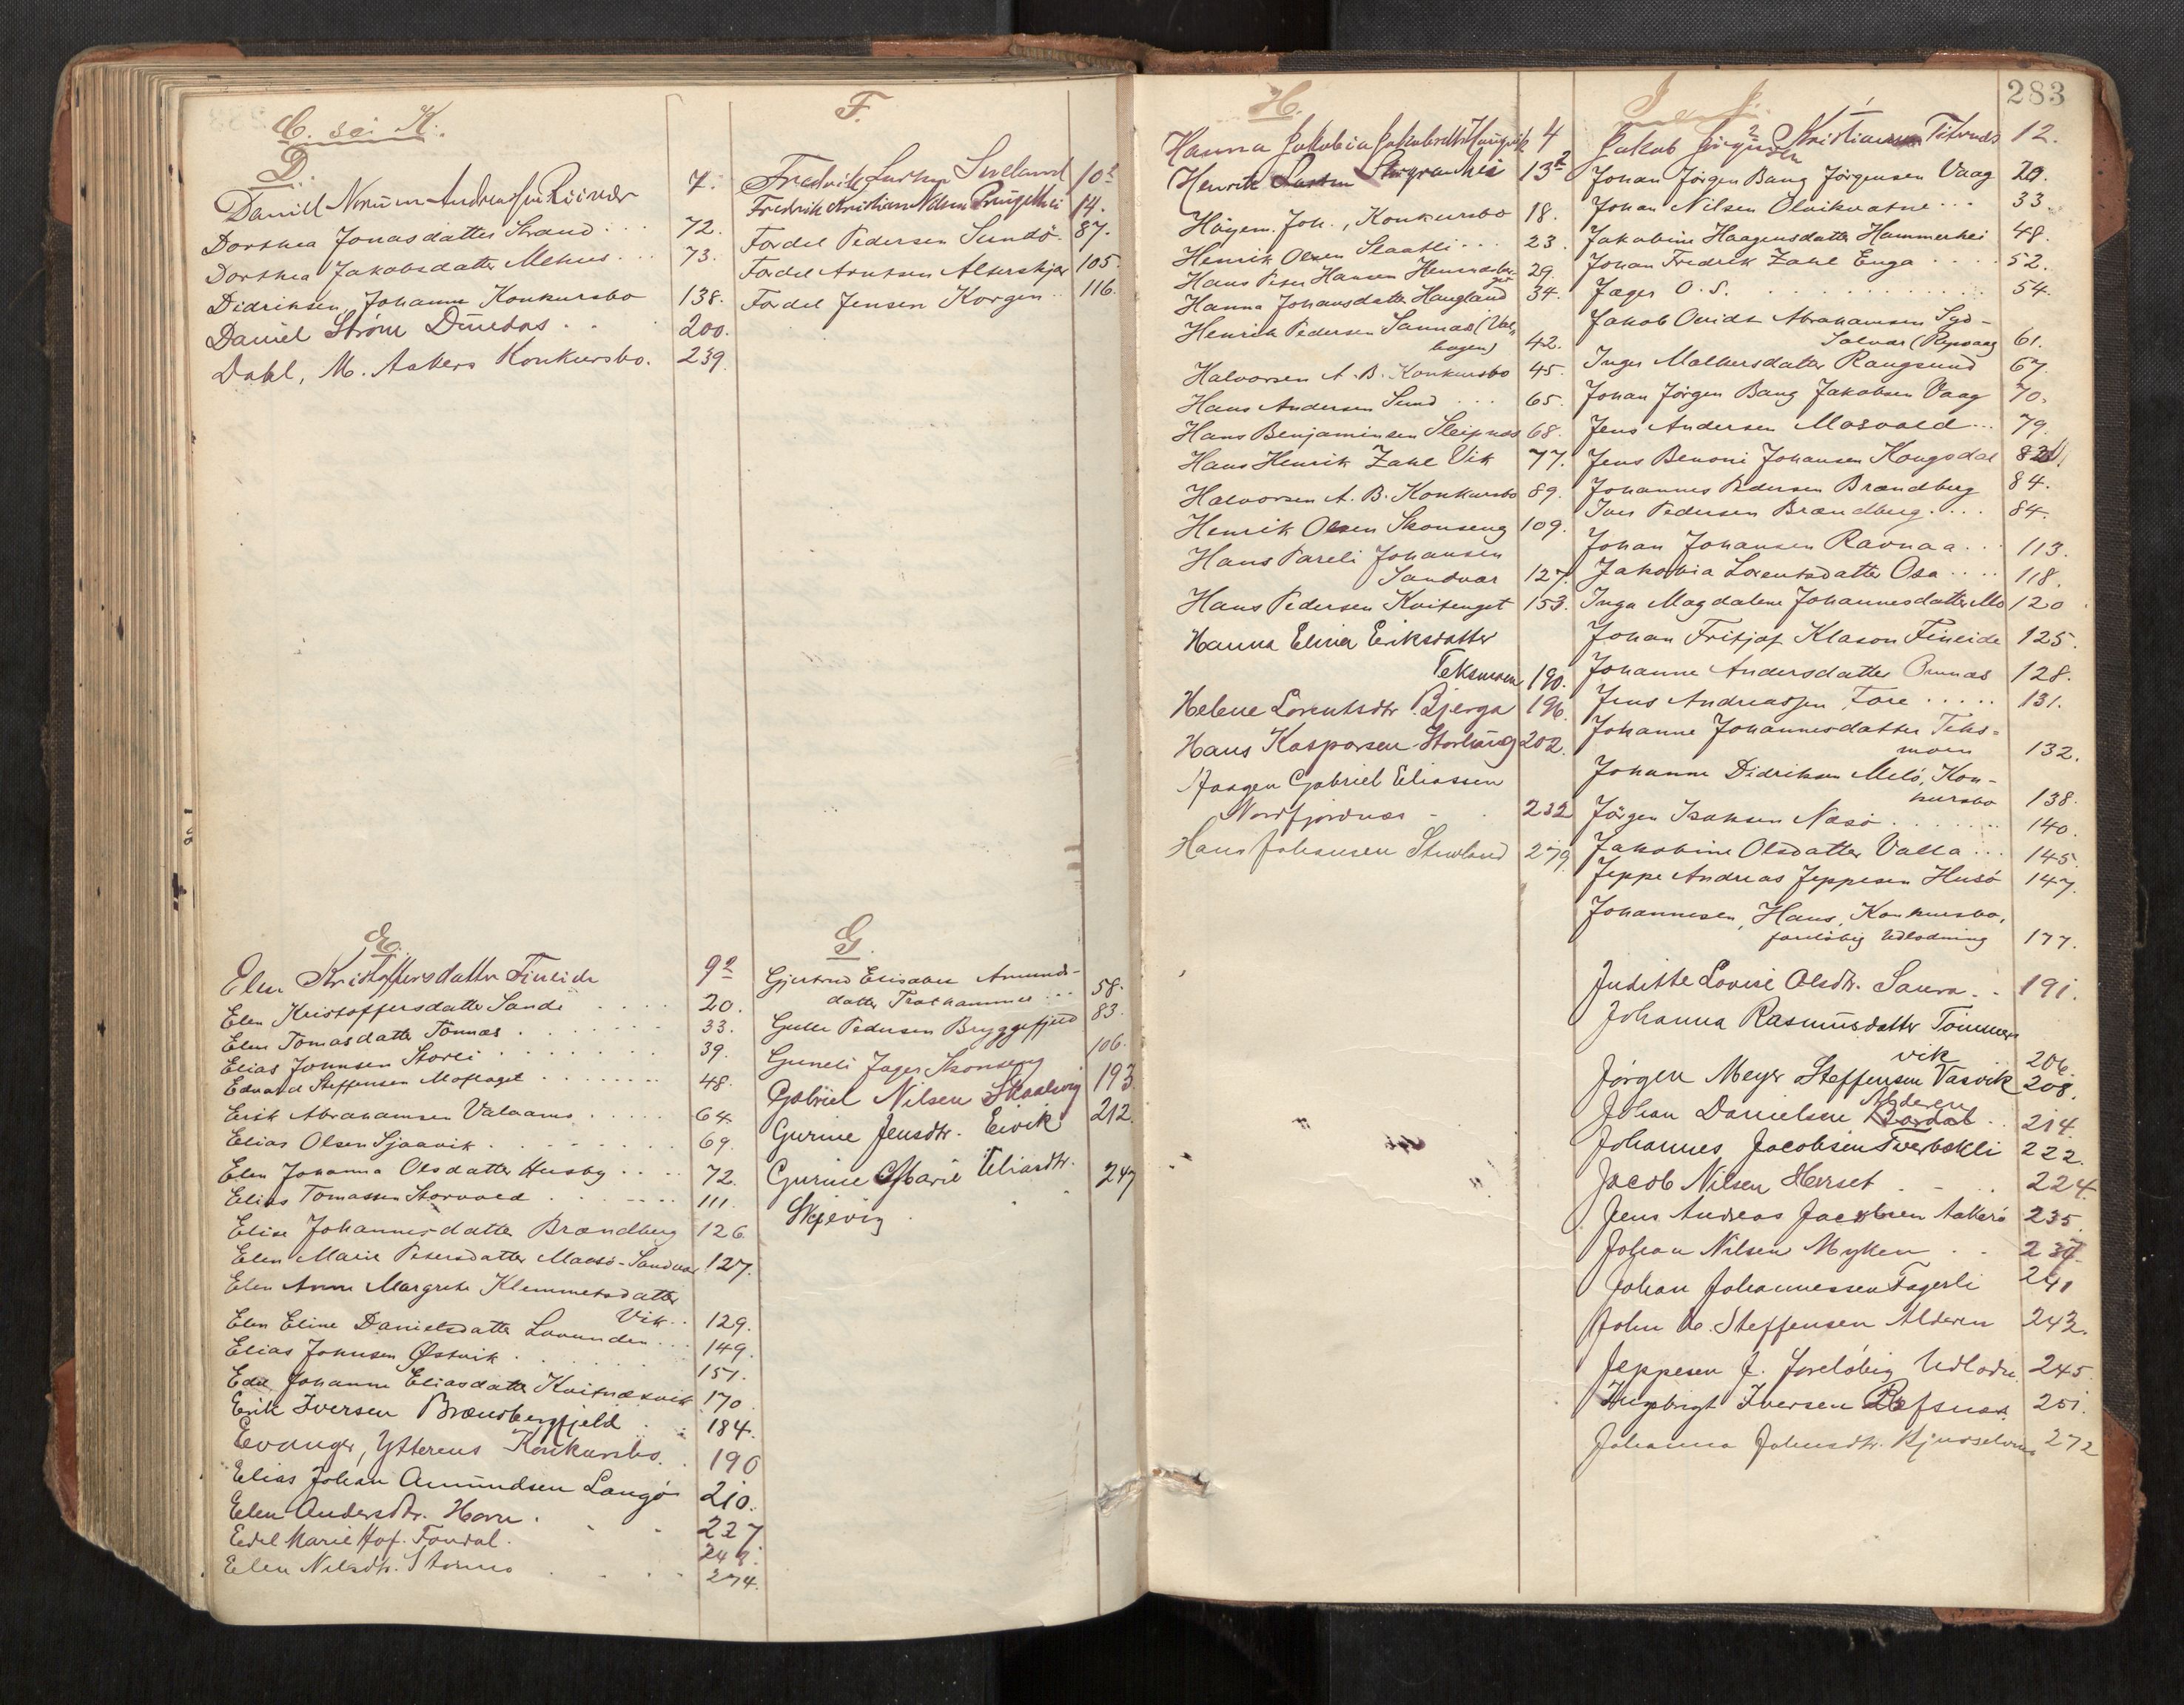 C. se: K.
D.
Daniel Nerum Andreassen
7.
Dorthea Jonasdatter Strand
72.
Dorthea Jakobsdatter Mehus
73.
Didriksen, Johanne Konkursbo
138.
Daniel Strøm Dunedas
200.
Dahl, M. Aakers Konkursbo.
239.
E.
Elen Kristoffersdatter Fineide
9²
Elen Kristoffersdatter Sande
20.
Elen Tomasdatter Tonnæs
33.
Elias Johnsen Storli
39.
Edvard Steffensen Moflaget
48.
Erik Abrahamsen Valaamo
64.
Elias Olsen Sjaavik
69.
Elen Johanna Olsdatter Husby
72.
Elias Tomassen Storvold
111.
Elise Johannesdatter Brændberg
126
Elen Marie Petersdatter Maasø-Sandvær
127.
Elen Anne Margrete Klemmetsdatter
Vik
129.
Elen Eline Danielsdatter Lovunden
149.
Elias Johnsen Østvik
151.
Edel Johanne Eliasdatter Kvitnæsvik
170
Erik Iversen Brændbergfjeld
184.
Evanger, Ytterens Konkursbo.
190
Elias Johan Amundsen Langø
210.
Elen Andersdtr. Horn
227.
Edel Marie Hof. Fondal.
248.
Elen Nilsdtr. Stormo
274.
F.
Fredrik Larsen Sneland
10²
Fredrik Kristian Nilsen
14.
Fordel Pedersen Sundø
87.
Fordel Arntsen Alterskjær
105
Fordel Jensen Korgen
116.
G.
Gjertrud Elisabet Amunds-
datter Trathammer
58.
Gulle Pedersen Bryggefjeld
83.
Guneli Jager Skonseng
106.
Gabriel Nilsen Skaalvig
193.
Gurine Jensdtr. Eivik
212.
Gurine Marie Eliasdtr.
247
Skjevig
283
H.
Hanna Jakobia Jakobsdtr Haugvik
4
Henrik Larsen Storgranhei
13²
Høyem. Joh., Konkursbo
18.
Henrik Olsen Slaatli
23.
Hans Peter Hansen
29.
Hanna Johansdatter Haugland
34.
Henrik Pedersen Sannæs (Val-
hagen)
42.
Halvorsen A. B. Konkursbo
45.
Hans Andersen Sund
65.
Hans Benjaminsen Sleipnæs
68.
Hans Henrik Zahl Vik
77.
Halvorsen A. B. Konkursbo
89.
Henrik Olsen Skonseng
109.
Hans Pareli Johansen
Sandvær
127.
Hans Pedersen Kvitenget
153.
Hanna Elina Eriksdatter
Teksmoen
190.
Helene Lorentsdtr Bjerga
196.
Hans Kaspersen Storlung
202.
Haagen Gabriel Eliassen
Nordfjordnæs
232
Hans Johansen Stuvland
279
I & J.
Jakob Jörgensen Kristiansen Titernæs
12.
Johan Jörgen Bang Jörgensen Vaag
20.
Johan Nilsen Olvikvatne
33.
Jakobine Haagensdatter Hammerhei
48.
Johan Fredrik Zahl Enga
52.
Jæger O. S.
54.
Jakob Ovidt Abrahamsen Syd-
Solvær (Repvaag)
61.
Inger Malkersdatter Rangsund
67.
Johan Jörgen Bang Jakobsen Vaag
70.
Jens Andersen Mosvold
79.
Jens Benoni Johansen Kongsdal
82
Johannes Pedersen Brændberg
84.
Iver Pedersen Brændberg
84.
Johan Johansen Ravnaa
113.
Jakobia Lorentsdatter Osa
118.
Inga Magdalene Johannesdatter Mo
120
Johan Fritjof Klason Fineide
125.
Johanne Andersdatter Ornnæs
128.
Jens Andreassen Fore
131.
Johanne Johannesdatter Teks-
moen
132.
Johanne Didriksen Melö, Kon-
kursbo
138.
Jörgen Isaksen Næsö
140.
Jakobine Olsdatter Valla
145.
Jeppe Andreas Jeppesen Husö
147.
Johannesen, Hans, Konkursbo,
foreløbig Udlodning
177.
Judithe Lovise Olsdtr. Saura
191.
Johanna Rasmusdatter Tømmer
vik
206.
Jørgen Meyer Steffensen Vasvik
208.
Johan Danielsen Alderen
214.
Johannes Jacobsen Tverbækli
222.
Jacob Nilsen Herset
224.
Jens Andreas Jacobsen Aakerö
235.
Johan Nilsen Myken
237.
Johan Johannessen Fagerli
241
John A. Steffensen Alderen
243.
Jeppesen J. foreløbig Udlodn.
245.
Ingebrigt Iversen Refsnæs
251.
Johanna Johnsdtr.
272